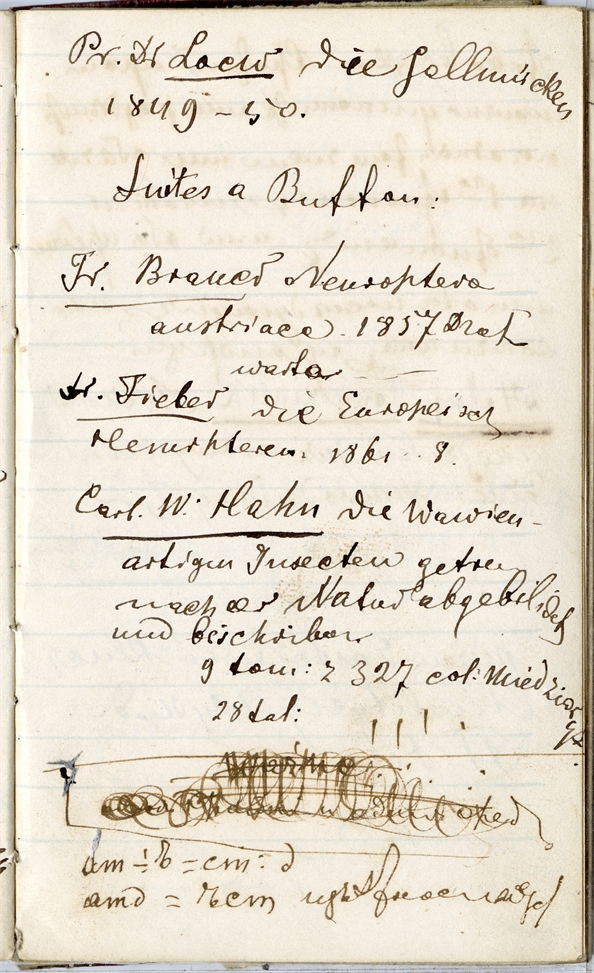 Pr. Dr Loew die Gallmücken
1849 – 50.
Suites a Buffon:
Fr. Brauer Neuroptera
austriaca. 1857
Dr. Fieber die Europeisch
Hemipteren. 1861. 8.
Carl. W. Hahn die Wanzen-
artigen Insecten getreu
nach der Natur abgebildet
und beschriben
9 tom: z 327 col: Miedzior
28 tal:
! ! ! !
am ÷ b = cm : d
amd = bcm